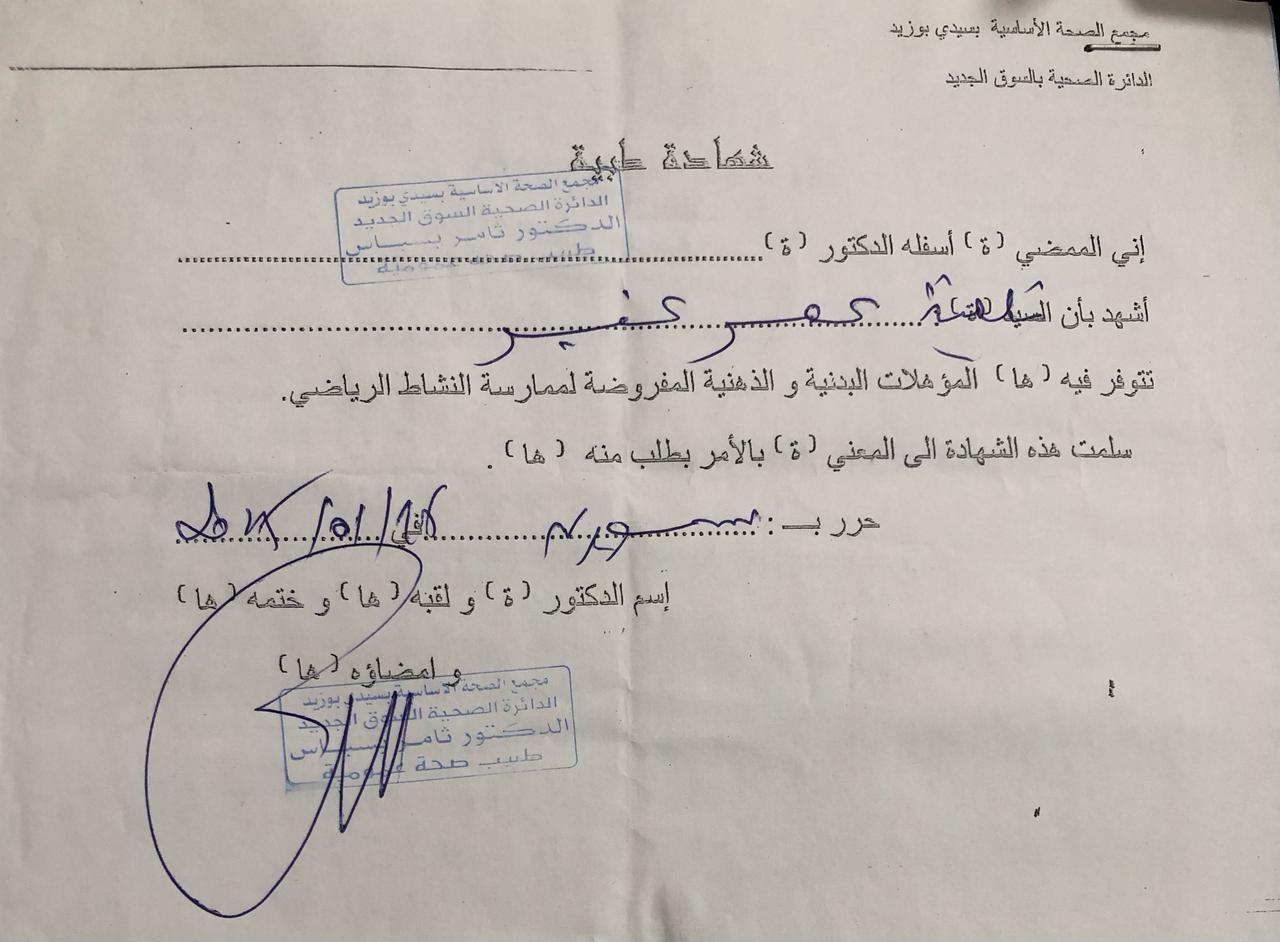 مجمع الصحة الأساسية بسيدي بوزيد
الدائرة الصحية بالسوق الجديد
شهادة طبية
مجمع الصحة الاساسية بسيدي بوزيد
الدائرة الصحية السوق الجديد
الدكتور ثامر بسباس
طبيب صحة عمومية
إني الممضي (ة) أسفله الدكتور (ة)
أشهد بأن السيد (ة)
تتوفر فيه (ها) المؤهلات البدنية و الذهنية المفروضة لممارسة النشاط الرياضي.
سلمت هذه الشهادة الى المعني (ة) بالأمر بطلب منه (ها) .
حرر بـ : في
إسم الدكتور (ة) و لقبه (ها) و ختمه (ها)
و امضاؤه (ها)
مجمع الصحة الاساسية بسيدي بوزيد
الدائرة الصحية السوق الجديد
الدكتور ثامر بسباس
طبيب صحة عمومية